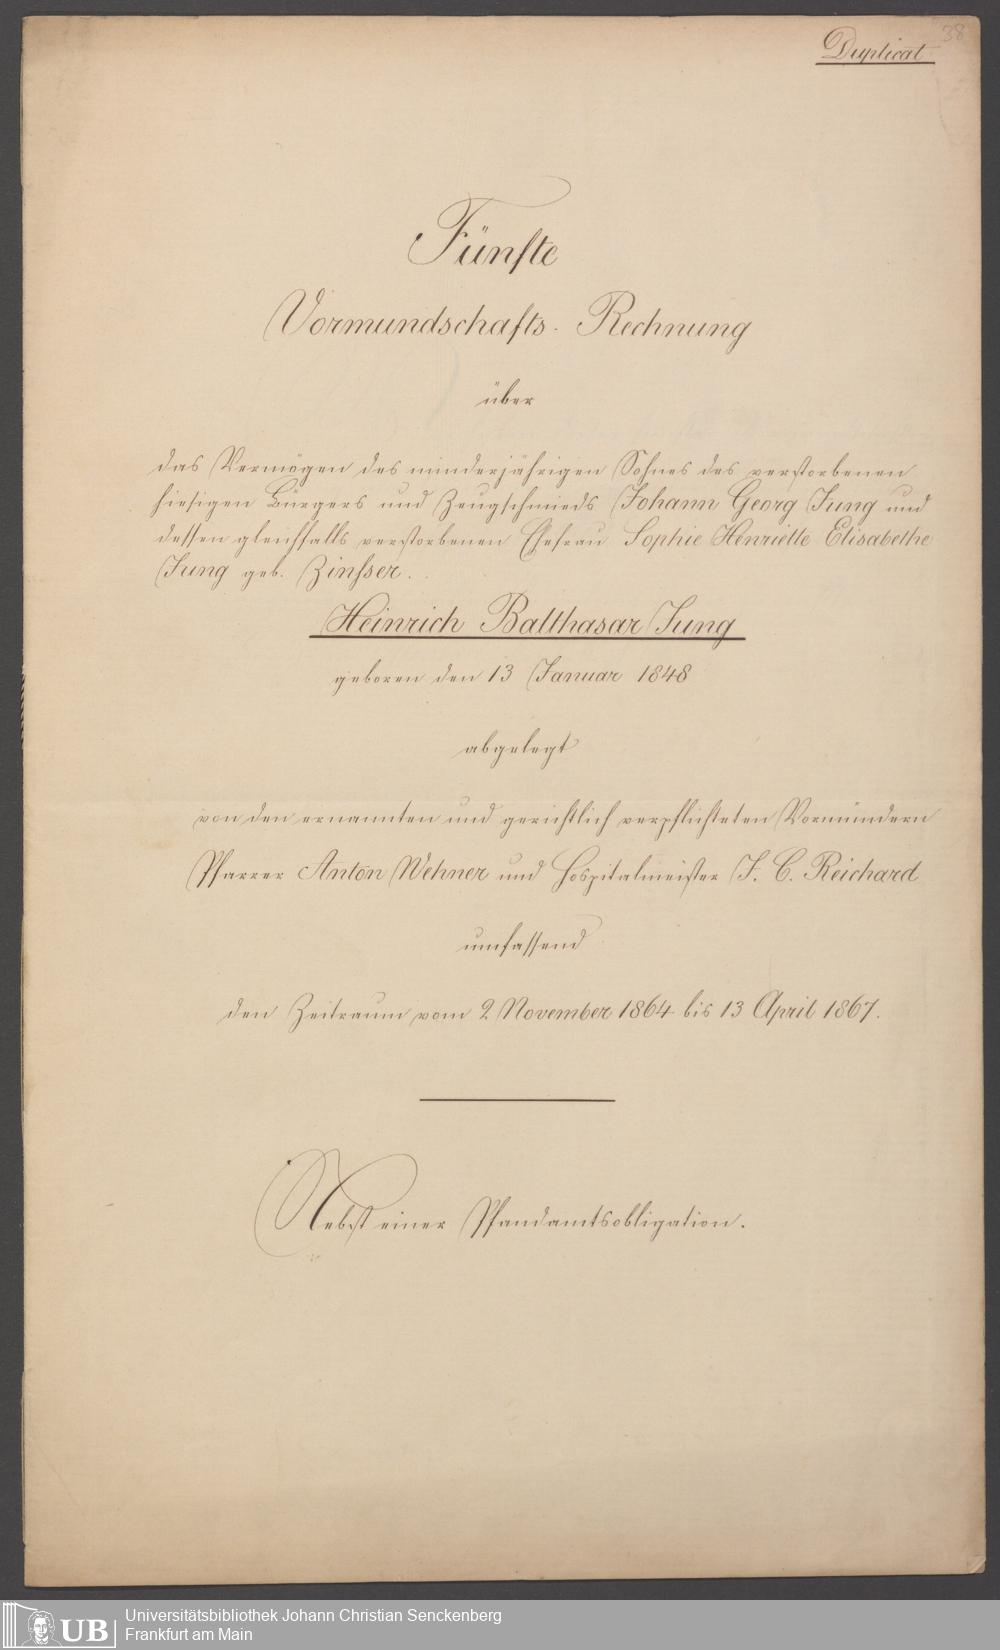 38
Duplicat
Fünfte
Vormundschafts-Rechnung
über
das Vermögen des minderjährigen Sohnes des verstorbenen
hiesigen Bürgers und Zeugschmieds Johann Georg Jung und
dessen gleichfalls verstorbenen Ehefrau Sophie Henriette Elisabethe
Jung geb. Zinsser.
Heinrich Balthasar Jung
geboren den 13 Januar 1848
abgelegt
von den ernannten und gerichtlich verpflichteten Vormündern
Pfarrer Anton Wehner und Hospitalmeister J. C. Reichard
umfassend
den Zeitraum vom 2 November 1864 bis 13 April 1867.
Nebst einer Pfandamtsobligation.
UB
Universitätsbibliothek Johann Christian Senckenberg
Frankfurt am Main